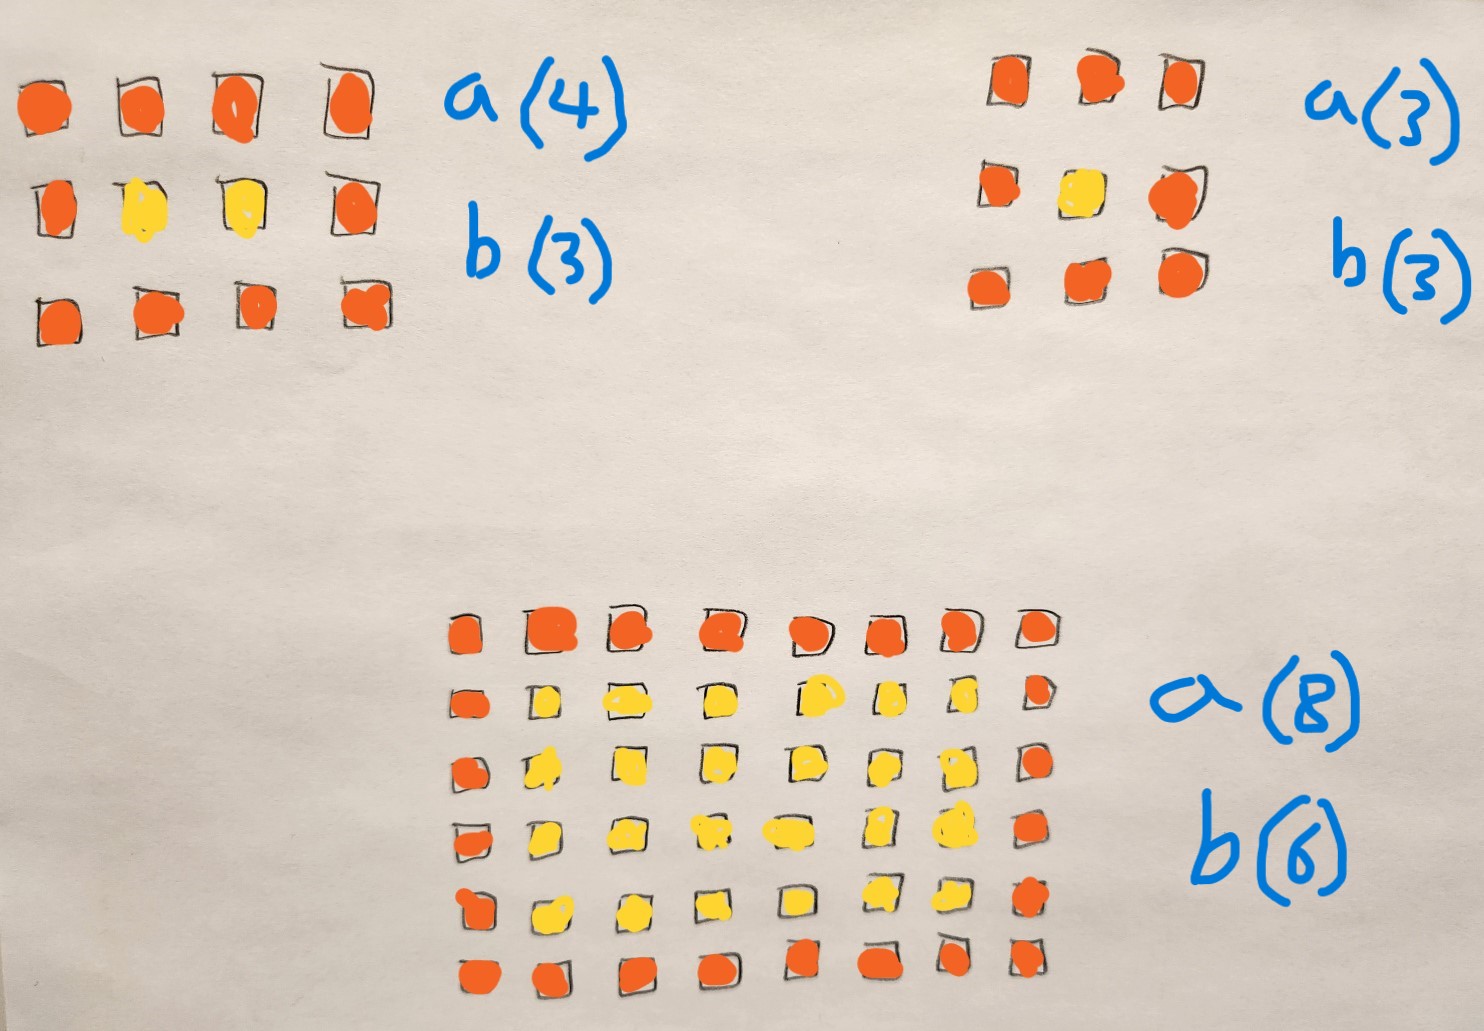 a (4)
b (3)
a (3)
b (3)
a (8)
b (6)